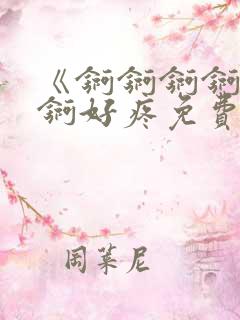 《锕锕锕锕
锕好疼免费
周莱尼